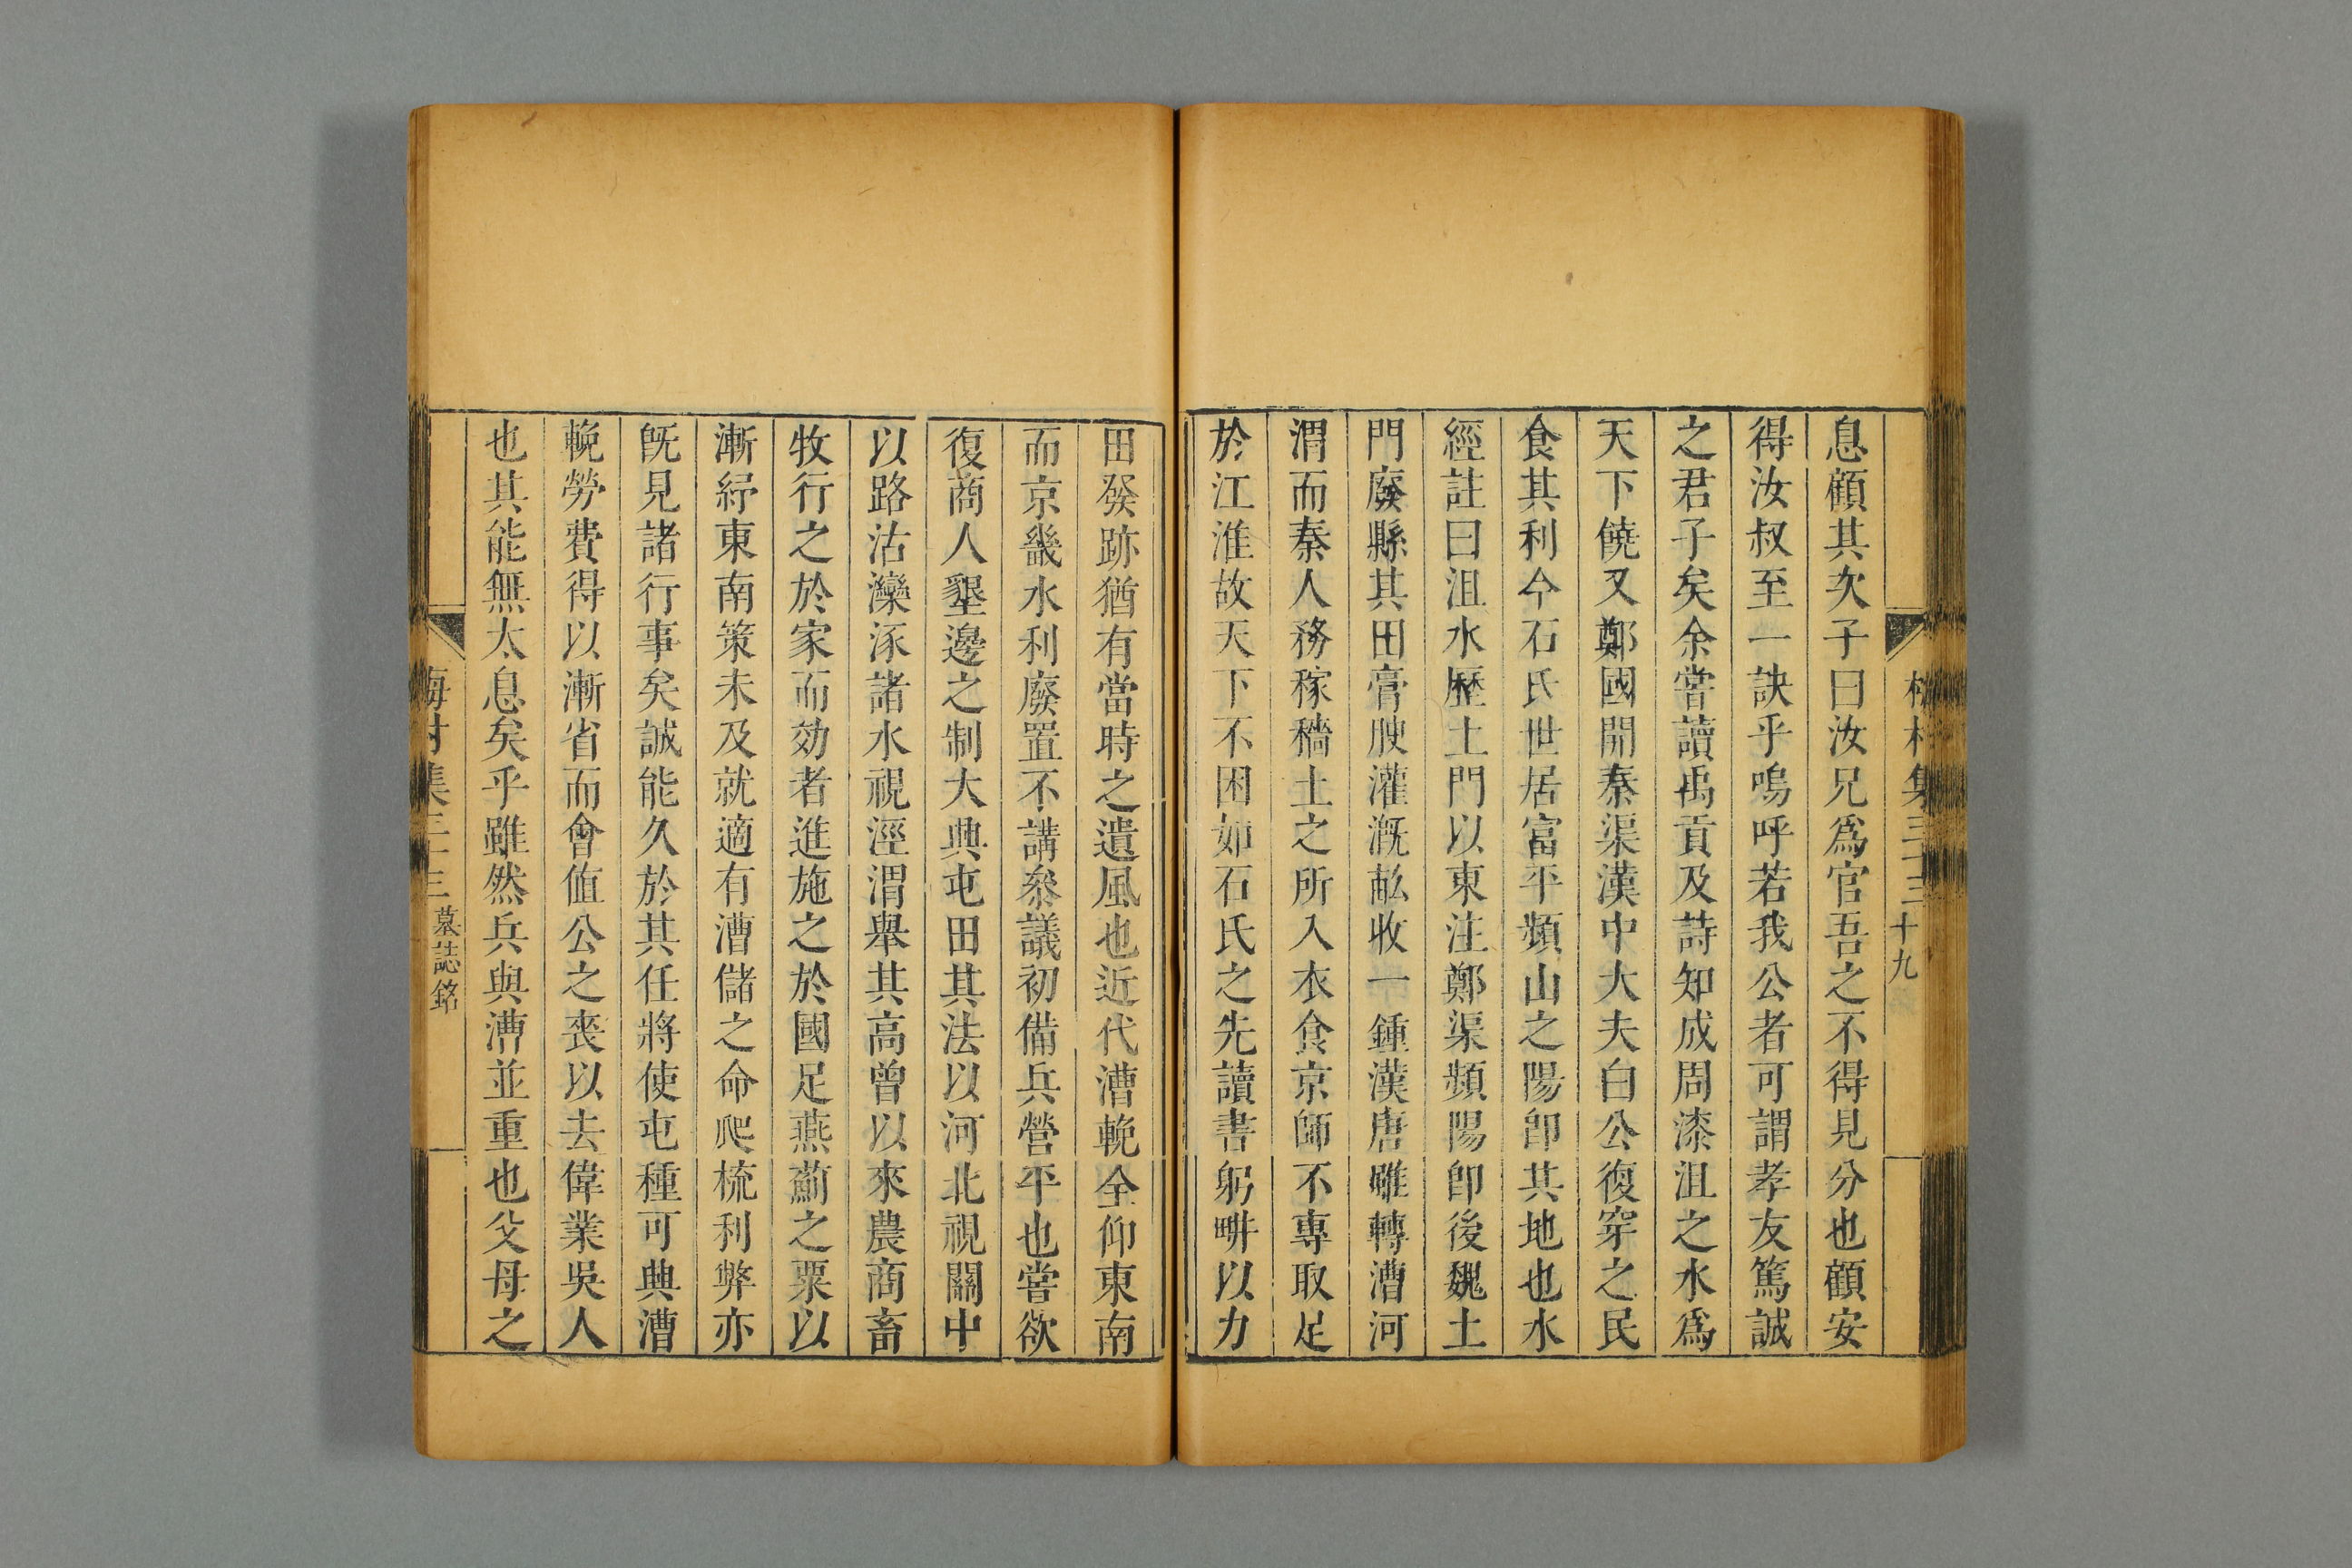 梅村集三十三 十九
息顧其次子曰汝兄爲官吾之不得見分也顧安
得汝叔至一訣乎嗚呼若我公者可謂孝友篤誠
之君子矣余嘗讀禹貢及詩知成周漆沮之水爲
天下饒又鄭國開秦渠漢中大夫白公復穿之民
食其利今石氏世居富平頻山之陽卽其地也水
經註曰沮水歷土門以東注鄭渠頻陽卽後魏土
門廢縣其田膏腴灌漑畝收一鍾漢唐雖轉漕河
渭而秦人務稼穡土之所入衣食京師不專取足
於江淮故天下不困如石氏之先讀書躬畊以力
田發跡猶有當時之遺風也近代漕輓全仰東南
而京畿水利廢置不講叅議初備兵營平也嘗欲
復商人墾邊之制大典屯田其法以河北視關中
以路沽灤涿諸水視涇渭舉其高曾以來農商畜
牧行之於家而効者進施之於國足燕薊之粟以
漸紓東南策未及就適有漕儲之命爬梳利弊亦
旣見諸行事矣誠能久於其任將使屯種可典漕
輓勞費得以漸省而會值公之喪以去偉業吳人
也其能無太息矣乎雖然兵與漕並重也父母之
梅村集三十三 墓誌銘